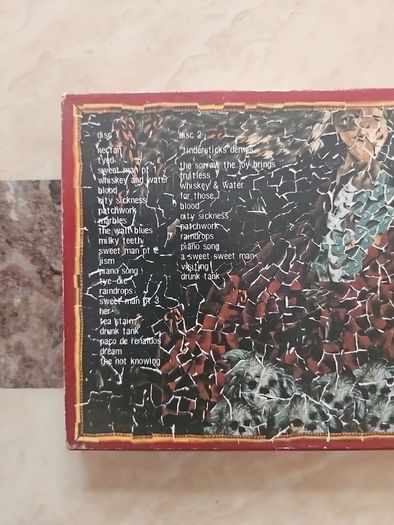 disc 1
nectar
tyed
sweet man pt 1
whiskey and water
blood
city sickness
patchwork
marbles
the walt blues
milky teeth
sweet man pt 2
jism
piano song
tye-die
raindrops
sweet man pt 3
her
tea stain
drunk tank
paco de renaldos
dream
the not knowing
disc 2
tindersticks demos
the sorrow the joy brings
fruitless
whiskey & water
for those
blood
city sickness
patchwork
raindrops
piano song
a sweet sweet man
visiting
drunk tank